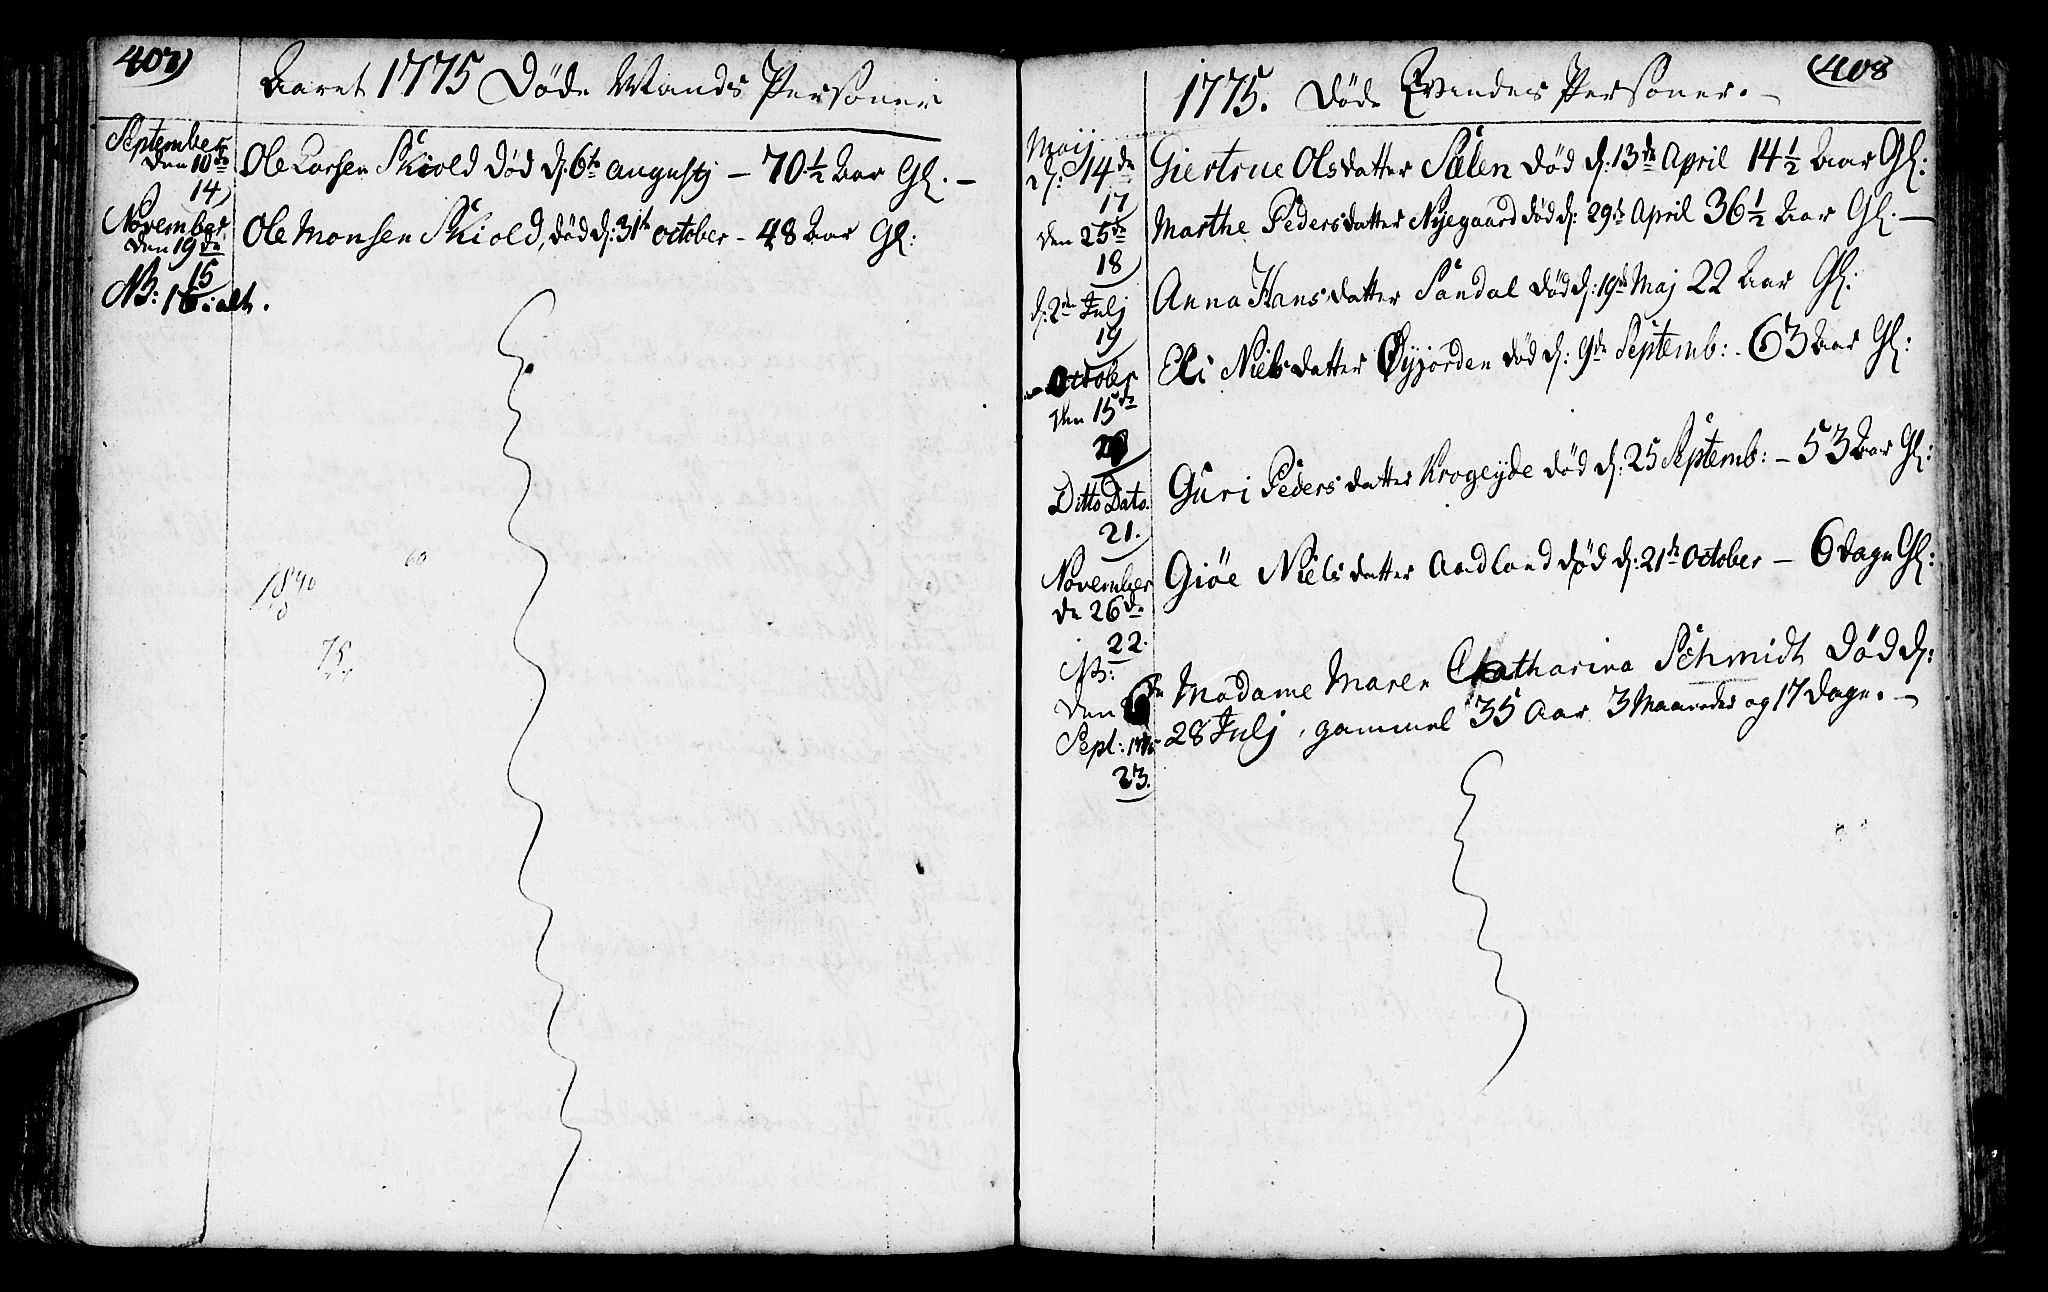 407)
Aaret 1775 Døde Mands Personer
September
den 10de
14)
Ole Larsen Skiold død d: 6te Augustj - 70 1/2 Aar Gl. -
November
den 19de
15
Ole Monsen Skiold, død d: 31te October - 48 Aar Gl:
NB: 16. alt.
1840
8
60
75
(408
1775. Døde Qvindes Personer. -
Maij
d: 14de
17
Giertrue Olsdatter Sælen død d: 13de April 14 1/2 Aar Gl:
den 25de
18)
Marthe Pedersdatter Nyegaard død d: 29de April 36 1/2 Aar Gl. -
d: 2de Julj
19
Anna Hansdatter Sandal død d: 19de Maj 22 Aar Gl:
October
den 15de
20
Eli Nielsdatter Øyjorden død d: 9de Septemb: - 63 Aar Gl:
Ditto Dato.
21.
Guri Pedersdatter Krogeyde død d: 25 Septemb: - 53 Aar Gl:
November
de 26de
22.
Giøe Nielsdatter Aadland død d: 21de October - 6 dage Gl:
NB:
den 6de
Sept: 1775
23.
Madame Maren Catharina Schmidt død d:
28 Julj, gammel 35 Aar 3 Maaneder og 17 dage. -